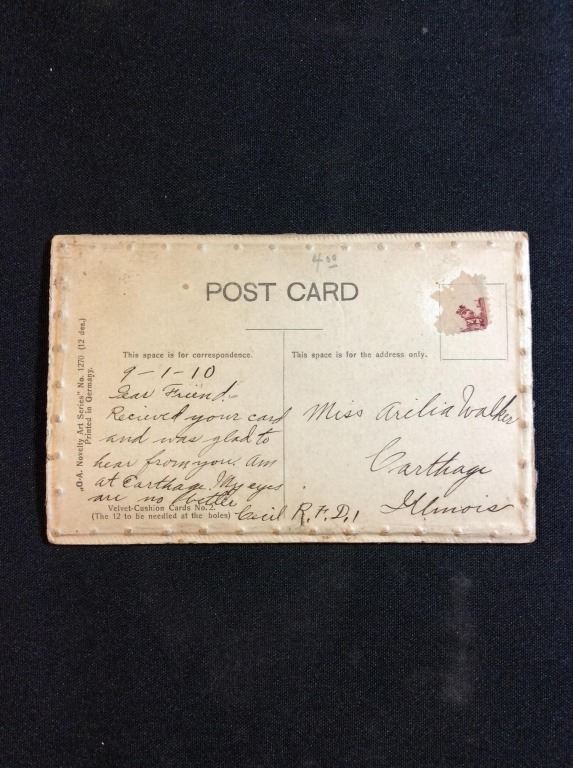 4.00
POST CARD
This space is for correspondence.
This space is for the address only.
9-1-10
Dear Friend:-
Recieved your card
and was glad to
hear from you. Am
at Carthage. My eyes
are no better
Cecil
Miss Arilia Walker
Carthage
Illinois
R.F.D. 1
Velvet-Cushion Cards No. 2.
(The 12 to be needled at the holes)
„O-A. Novelty Art Series" No. 1270 (12 des.)
Printed in Germany.